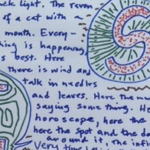 ck light. The rerun
of a cat with
month. Every-
thing is happening,
is best. Here
there is wind and
talk in needles
and leaves. Here the
saying something. He
horoscope, here the
here the spot and the do
around it, the infi
Very